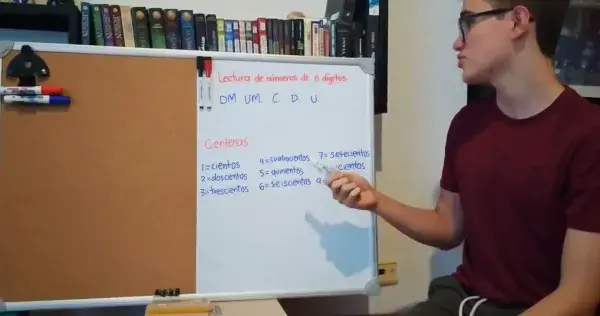 Lectura de números de 5 dígitos
DM UM. C. D. U.
Centenas
1=cientos 4=cuatrocientos 7=setecientos
2=doscientos 5=quinientos cientos
3=trescientos 6=seiscientos 9=